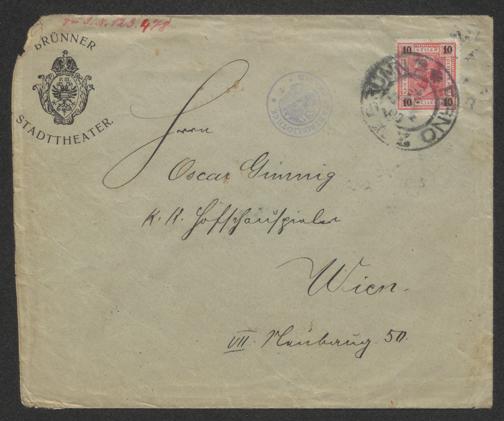 BRÜNNER
STADTTHEATER.
10 10
10 10
BRÜNN
BRNO
Herrn
Oscar Gimnig
K. K. Hofschauspieler
Wien.
VII. Neubaug. 50.